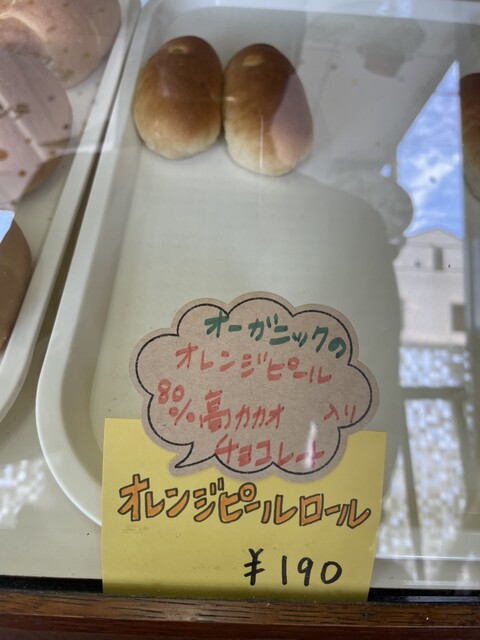 オーガニックの
オレンジピール
80%高カカオ 入り
チョコレート
オレンジピールロール
¥190